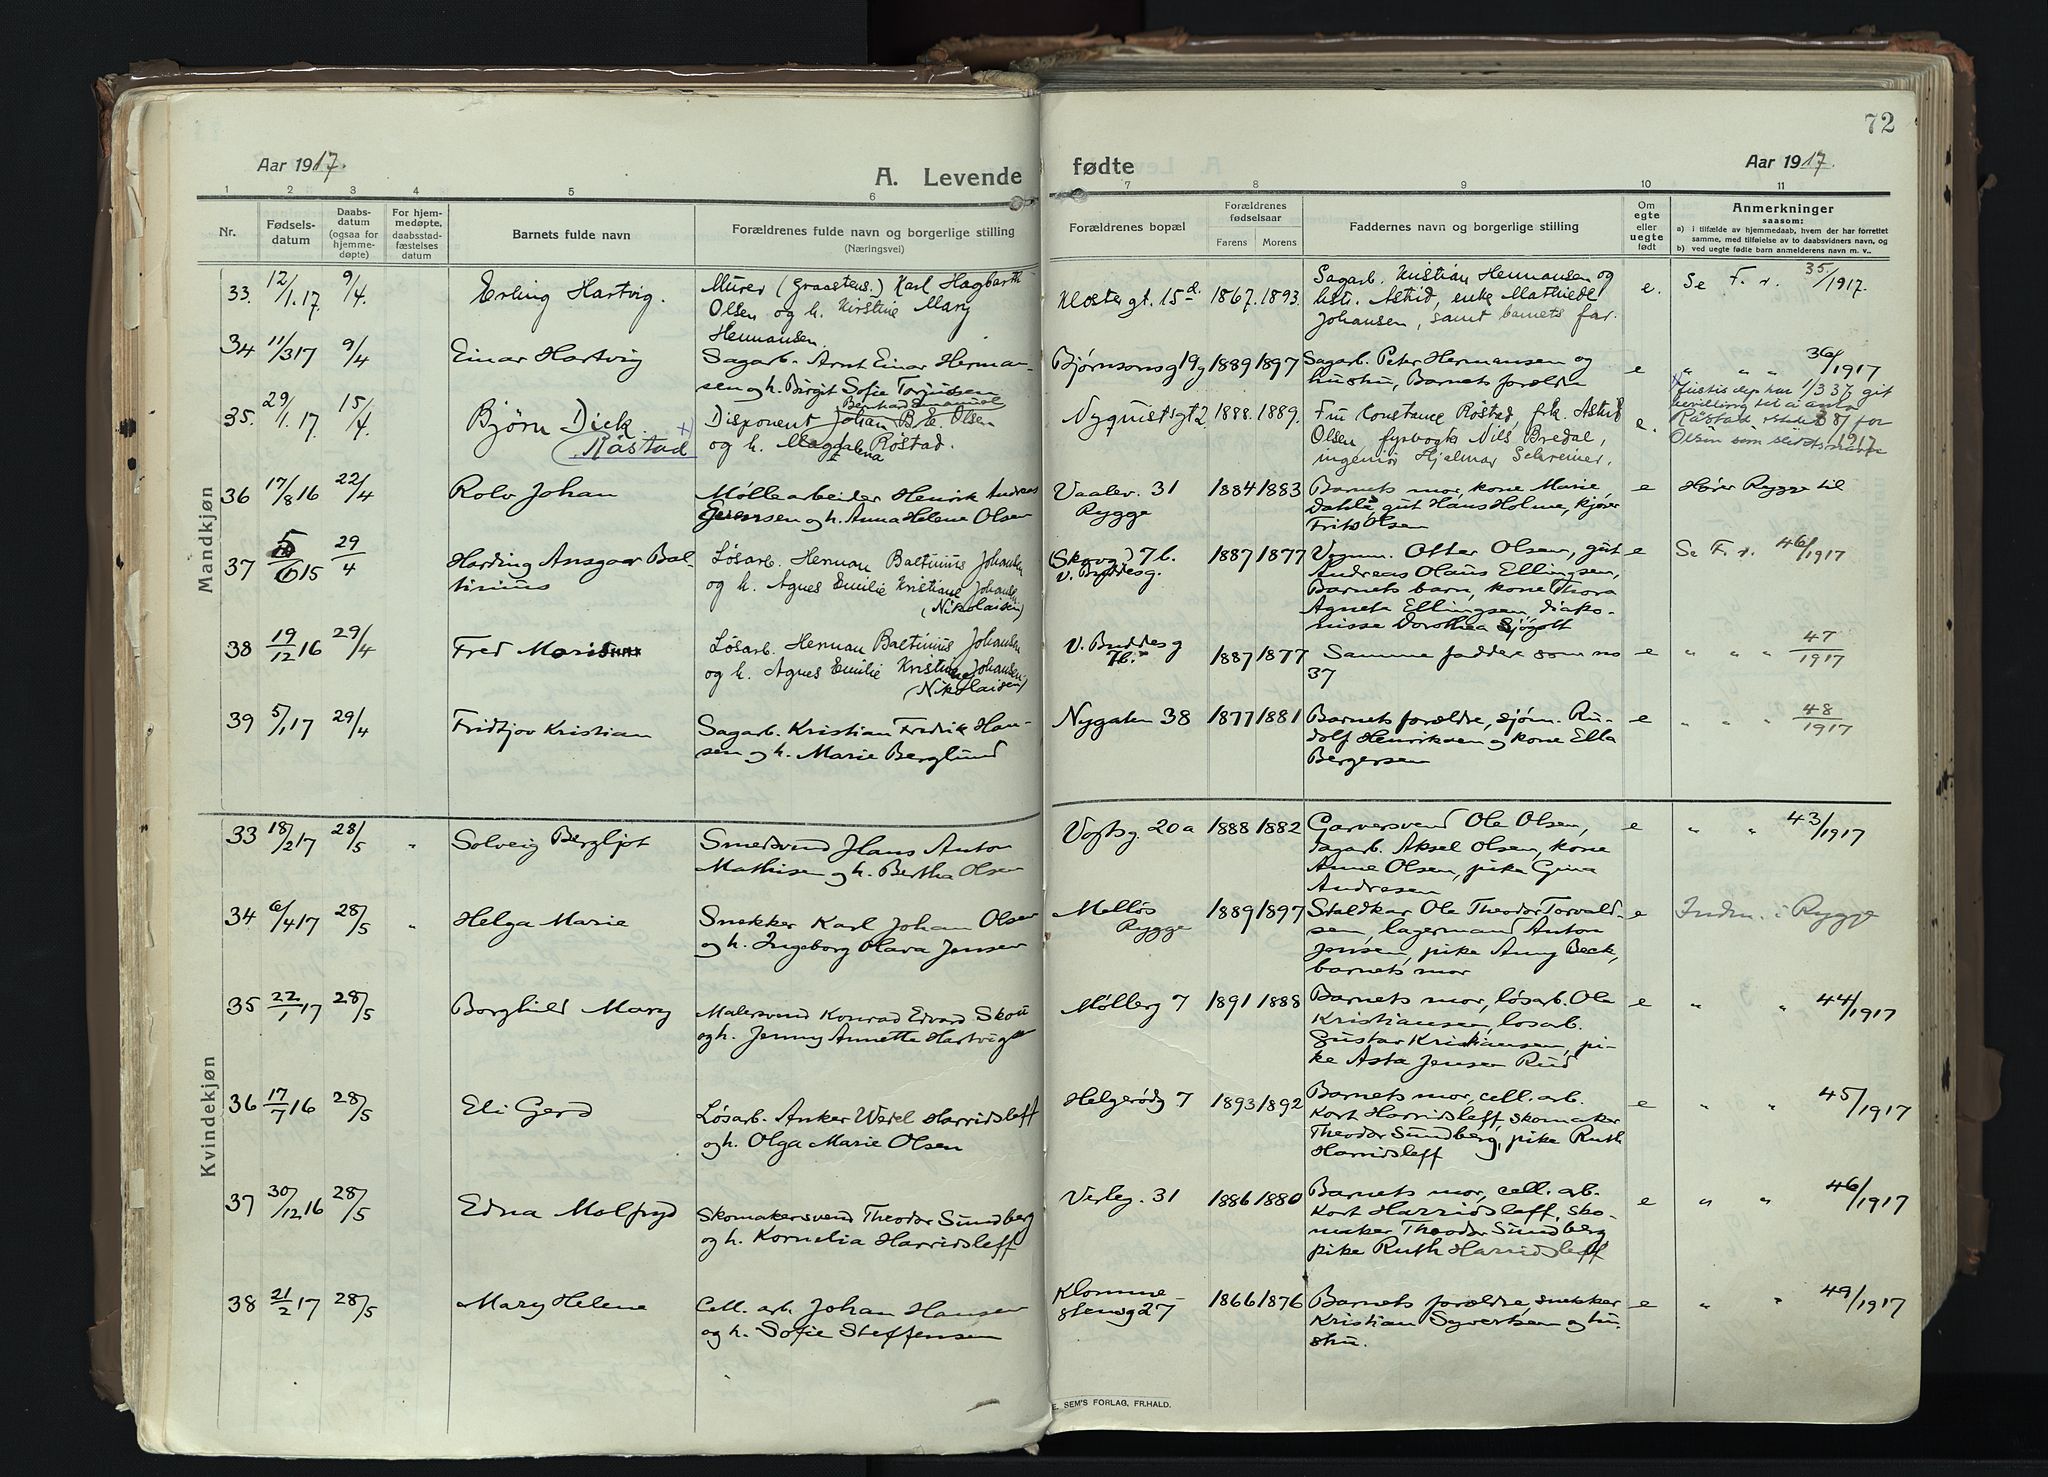 72
Aar 1917.
A. Levende
fødte
Aar 1917.
1 2 3 4 5 6 7 8 9 10 11
Nr.
Fødsels-
datum
Daabs-
datum
(ogsaa for
hjemme-
døpte)
For hjem-
medøpte,
daabsstad-
fæstelses
datum
Barnets fulde navn
Forældrenes fulde navn og borgerlige stilling
(Næringsvei)
Forældrenes bopæl
Forældrenes
fødselsaar
Farens Morens
Faddernes navn og borgerlige stilling
Om
egte
eller
uegte
født
Anmerkninger
saasom:
a) i tilfælde av hjemmedaab, hvem der har forrettet
samme, med tilføielse av to daabsvidners navn, og
b) ved uegte fødte barn anmelderens navn m. v..
Mandkjøn
33. 12/1.17. 9/4. Erling Hartvig.
Murer (graastens.) Karl Hagbarth
Olsen og h. Kirstine Mary
Hermansen.
Klostergt. 15d 1867. 1893.
Sagarb. Kristian Hermansen og
hstr. Astrid, enke Mathilde
Johansen, samt barnets far.
e. Se F. r. 35/1917.
34 11/3 17 9/4 Einar Hartvig
Sagarb. Arnt Einar Herman-
sen og h. Birgit Sofie Torjussen
Bjørnsonsg 19g 1889 1897
Sagarb. Peter Hermansen og
hustru, Barnets forældre
e " " " 36/1917
35. 29/1.17. 15/4. Bjørn Dick x)
Råstad
Bernhard Emanuel
Disponent Johan B. E. Olsen
og h. Magdalena Røstad.
Nyquistgt 2. 1888. 1889.
Fru Constance Røstad, frk. Astrid
Olsen, fyrvogter Nils Bredal,
ingeniør Hjalmar Schreiner.
e.
x Justisdep har 1/3 37 git
bevilling til å anta
Råstad istedet for
Olsen som slektsnavn
38/1917
36 17/8 16 22/4 Rolv Johan
Møllearbeider Henrik Andreas
Jensen og h. Anna Helene Olsen
Vaalev. 31
Rygge
1884 1883
Barnets mor, kone Marie
Dahle, gut Hans Holme, kjører
Frits Olsen
e Hører Rygge til
37 5/6 15 29/4 Harding Ansgar Bal-
tinius
Løsarb. Herman Baltinius Johansen
og h. Agnes Emilie Kristiane Johansen
(Nikolaisen)
(Skovg) 7b.
v. Buddesg.
1887 1877
Vognm. Otter Olsen, gut
Andreas Olaus Ellingsen,
Barnets barn, kone Thora
Agneta Ellingsen, diako-
nisse Dorothea Sjøgolt
e Se F. r. 46/1917
38 19/12 16 29/4 Fred
Løsarb. Herman Baltinius Johansen
og h. Agnes Emilie Kristiane Johansen
(Nikolaisen)
V. Buddesg
7b.
1887 1877
Samme faddere som no
37
e " " " 47/1917
39 5/1 17 29/4 Fridtjov Kristian
Sagarb. Kristian Fredrik Han-
sen og h. Marie Berglund
Nygaten 38 1877 1881
Barnets forældre, sjøm. Ru-
dolf Henriksen og kone Ella
Bergersen
e " " " 48/1917
Kvindekjøn
33 18/2 17 28/5 " Solveig Bergljot
Smedsvend Hans Anton
Mathisen og h. Bertha Olsen
Vogtsg. 20a 1888 1882
Garversvend Ole Olsen,
sagarb. Aksel Olsen, kone
Anne Olsen, pike Gina
Andresen
e " " 43/1917
34 6/4 17 28/5 " Helga Marie
Snekker Karl Johan Olsen
og h. Ingeborg Olava Jensen
Melløs
Rygge
1889 1897
Staldkar Ole Theodor Torvald-
sen, lagermand Anton
Jensen, pike Anny Beck,
barnets mor
e Indm. i Rygge
35 22/1 17 28/5 Borghild Mary
Malersvend Konrad Edvard Skou
og h. Jenny Annette Hartvigsen
Mølleg 7 1891 1888
Barnets mor, løsarb. Ole
Kristiansen, løsarb.
Gustav Kristiansen, pi-
ke Asta Jensen Rud
e " " 44/1917
36 17/7 16 28/5 Eli Gerd
Løsarb. Anker Wedel Harridsleff
og h. Olga Marie Olsen
Helgerødg 7 1893 1892
Barnets mor, cell. arb.
Kort Harridsleff, skomaker
Theodor Sundberg, pike Ruth
Harridsleff
e " " 45/1917
37 30/12 16 28/5 Edna Molfryd
Skomakersvend Theodor Sundberg
og h. Kornelia Harridsleff
Verleg. 31 1886 1880
Barnets mor, cell. arb.
Kort Harridsleff, sko-
maker Theodor Sundberg
pike Ruth Harridsleff
e " " 46/1917
38 21/2 17 28/5 Mary Helene
Cell. arb. Johan Hansen
og h. Sofie Steffensen
Klomme-
stensg 27
1866 1876
Barnets forældre, snekker
Kristian Syvertsen og hu-
stru.
e " " 49/1917
E. SEM'S FORLAG, FR.HALD.